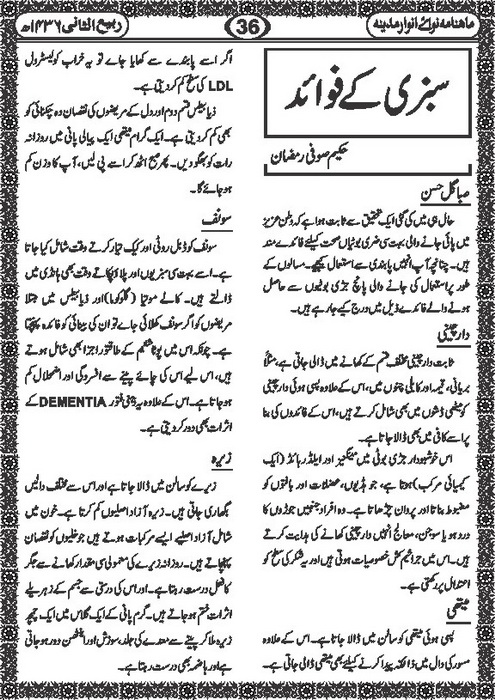 ماہنامہ نوائے انوار مدینہ
36
ربیع الثانی ۱۴۳۶ھ
سبزی کے فوائد
حکیم صوفی رمضان
صبا گل حسن
حال ہی میں کی گئی ایک تحقیق سے ثابت ہوا ہے کہ وطن عزیز
میں پائی جانے والی بہت سی ضری بوٹیاں صحت کیلئے فائدے مند
ہیں۔ چنانچہ آپ انہیں پابندی سے استعمال کیجیے۔ مسالوں کے
طور پر استعمال کی جانے والی پانچ جڑی بوٹیوں سے حاصل
ہونے والے فائدے ذیل میں درج کیے جا رہے ہیں۔
دار چینی
ثابت دار چینی مختلف قسم کے کھانے میں ڈالی جاتی ہے، مثلاً
بریانی، قیمہ اور کابلی چنوں میں، اس کے علاوہ پسی ہوئی دار چینی
کو میٹھی ڈشوں میں بھی شامل کرتے ہیں، اس کے فائدوں کی بنا
پر اسے کافی میں بھی ڈالا جاتا ہے۔
اس خوشبودار جڑی بوٹی میں مینگنیز اور ایلڈر ہائڈ (ایک
کیمیائی مرکب) ہوتا ہے، جو ہڈیوں، عضلات اور بافتوں کو
مضبوط بناتا اور پروان چڑھاتا ہے۔ وہ افراد جنہیں جوڑوں کا
درد ہو یا سوجن، معالج انہیں دار چینی کھانے کی ہدایت کرتے
ہیں۔ اس میں جراثیم کش خصوصیات ہوتی ہیں اور یہ شکر کی سطح کو
اعتدال پر رکھتی ہے۔
میتھی
پسی ہوئی میتھی کو سالن میں ڈالا جاتا ہے۔ اس کے علاوہ
مسور کی دال میں ذائقہ پیدا کرنے کیلئے بھی میتھی ڈالی جاتی ہے۔
اگر اسے پابندے سے کھایا جاے تو یہ خراب کولیسٹرول
LDL کی سطح کم کر دیتی ہے۔
ذیابیطس قسم دوم اور دل کے مریضوں کی نقصان دہ چکنائی کو
بھی کم کر دیتی ہے۔ ایک گرام میتھی ایک پیالی پانی میں روزانہ
رات کو بھگو دیں۔ پھر صبح اٹھ کر اسے پی لیں، آپ کا وزن کم
ہو جائے گا۔
سونف
سونف کو ڈبل روٹی اور کیک تیار کرتے وقت شامل کیا جاتا
ہے۔ اسے بہت سی سبزیوں اور پلاؤ پکاتے وقت بھی ہانڈی میں
ڈالتے ہیں۔ کالے موتیا (گلوکوما) اور ذیابیطس میں مبتلا
مریضوں کو اگر سونف کھلائی جائے تو ان کی بینائی کو فائدہ پہنچتا
ہے۔ چونکہ اس میں پوٹاشیم کے طاقتور اجزا بھی شامل ہوتے
ہیں، اس لیے اس کی چائے پینے سے افسردگی اور اضمحلال کم
ہو جاتا ہے۔ اس کے علاوہ یہ ذہنی فتور DEMENTIA کے
اثرات بھی دور کر دیتی ہے۔
زیرہ
زیرے کو سالن میں ڈالا جاتا ہے اور اس سے مختلف دالیں
بگھاری جاتی ہیں۔ زیرہ آزاد اصلیوں کم کرتا ہے۔ خون میں
شامل آزاد اصلیے ایسے مرکبات ہوتے ہیں جو خلیوں کو نقصان
پہنچاتے ہیں۔ روزانہ زیرے کی معمولی سی مقدار کھانے سے جگر
کا فعل درست رہتا ہے۔ اور اس کی درستی سے جسم کے زہریلے
اثرات ختم ہو جاتے ہیں۔ گرم پانی کے ایک گلاس میں ایک چمچ
زیرہ ملا کر پینے سے معدے کی جلن، سوزش اور اینٹھن دور ہو جاتی
ہے اور ہاضمہ بھی درست رہتا ہے۔